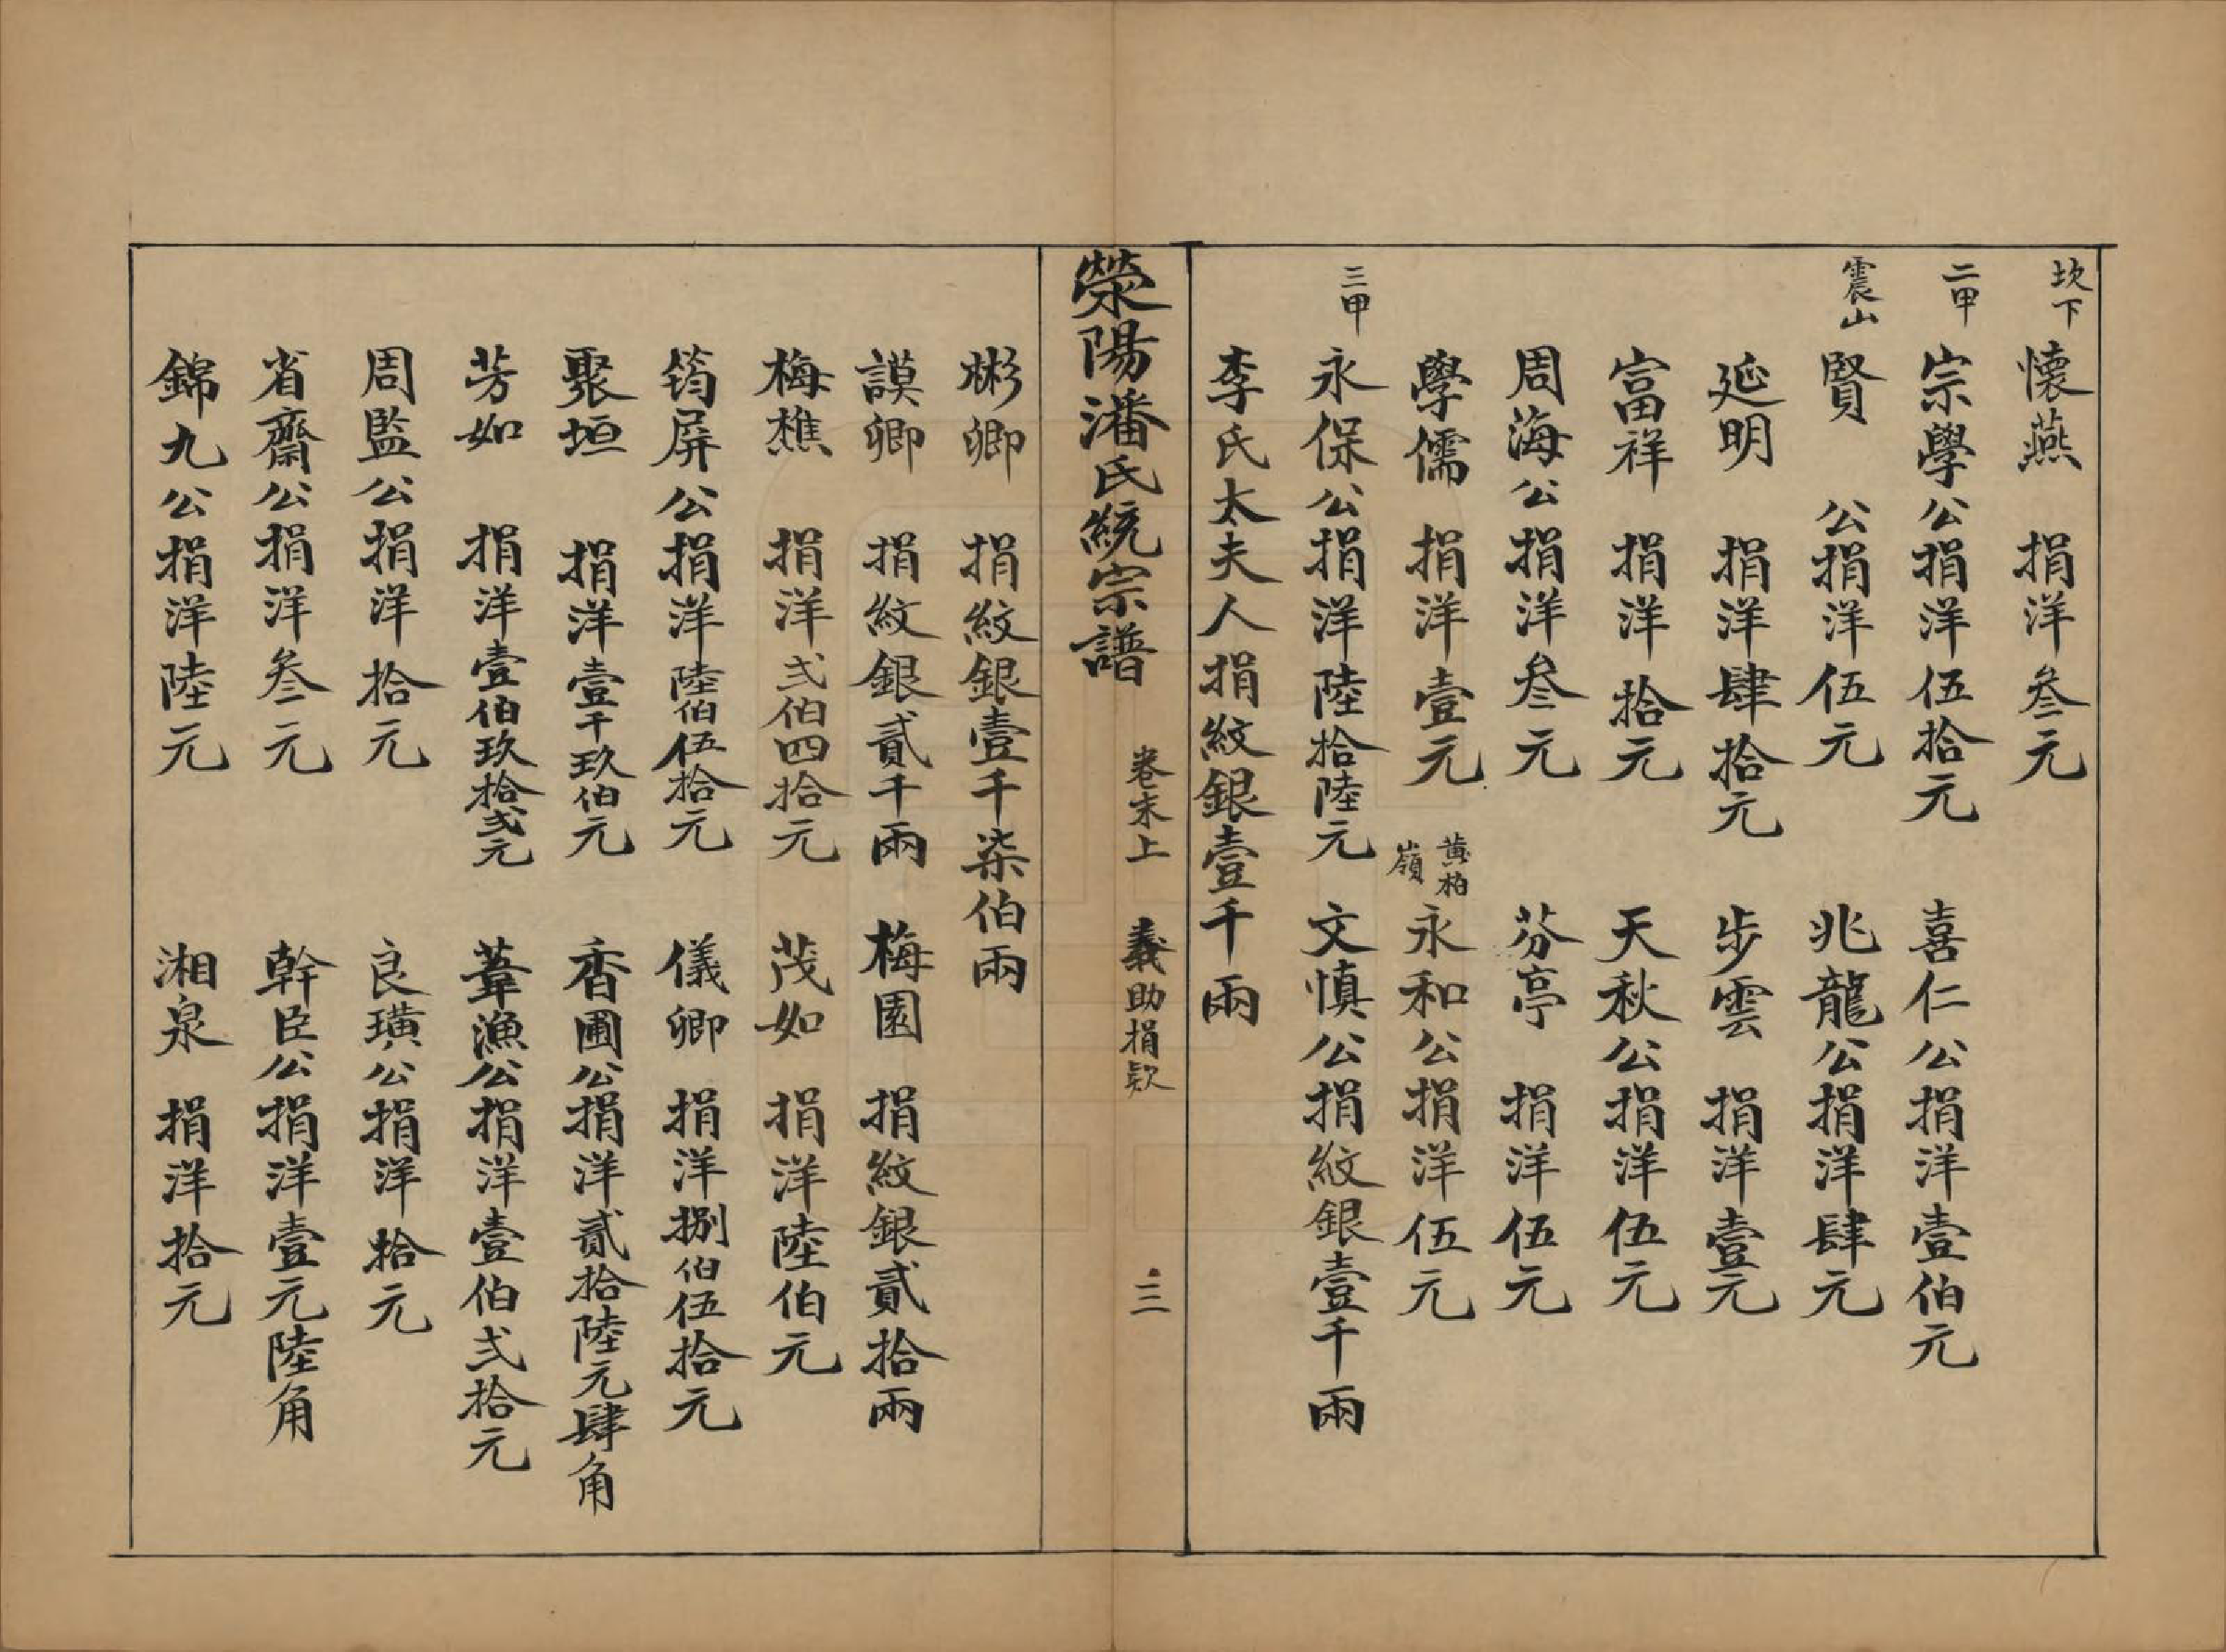 坎下 懷燕 捐洋叁元
二甲 宗學公捐洋伍拾元 喜仁公捐洋壹伯元
震山 賢 公捐洋伍元 兆龍公捐洋肆元
延明 捐洋肆拾元 步雲 捐洋壹元
富祥 捐洋拾元 天秋公捐洋伍元
周海公捐洋叁元 芬亭 捐洋伍元
學儒 捐洋壹元 黃柏嶺 永和公捐洋伍元
三甲 永保公捐洋陸拾陸元 文慎公捐紋銀壹千兩
李氏太夫人捐紋銀壹千兩
滎陽潘氏統宗譜 卷末上 義助捐款 三
彬卿 捐紋銀壹千柒伯兩
謨卿 捐紋銀貳千兩 梅園 捐紋銀貳拾兩
梅樵 捐洋弍伯四拾元 茂如 捐洋陸伯元
筠屏公捐洋陸伯伍拾元 儀卿 捐洋捌伯伍拾元
聚垣 捐洋壹千玖伯元 香圃公捐洋貳拾陸元肆角
芳如 捐洋壹伯玖拾弍元 葦漁公捐洋壹伯弍拾元
周監公捐洋拾元 良璜公捐洋拾元
省齋公捐洋叁元 幹臣公捐洋壹元陸角
錦九公捐洋陸元 湘泉 捐洋拾元